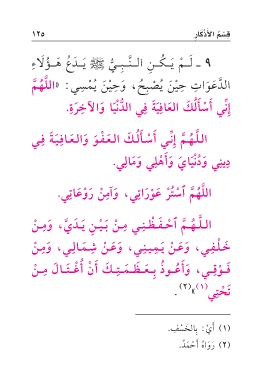 قِسْمُ الأَذْكَارِ ١٢٥
٩ ـ لَـمْ يَـكُـنِ الـنَّـبِـيُّ ﷺ يَـدَعُ هَـؤُلَاءِ
الدَّعَوَاتِ حِيْنَ يُصْبِحُ، وَحِيْنَ يُمْسِي: «اللَّهُمَّ
إِنِّي أَسْأَلُكَ العَافِيَةَ فِي الدُّنْيَا وَالآخِرَةِ.
اللَّهُمَّ إِنِّي أَسْأَلُكَ العَفْوَ وَالعَافِيَةَ فِي
دِينِي وَدُنْيَايَ وَأَهْلِي وَمَالِي.
اللَّهُمَّ ٱسْتُرْ عَوْرَاتِي، وَآمِنْ رَوْعَاتِي.
اللَّهُمَّ ٱحْفَظْنِي مِنْ بَيْنِ يَدَيَّ، وَمِنْ
خَلْفِي، وَعَنْ يَمِينِي، وَعَنْ شِمَالِي، وَمِنْ
فَوْقِي، وَأَعُوذُ بِعَظَمَتِكَ أَنْ أُغْتَالَ مِنْ
تَحْتِي(١)»(٢).
(١) أَيْ: بِالخَسْفِ.
(٢) رَوَاهُ أَحْمَدُ.